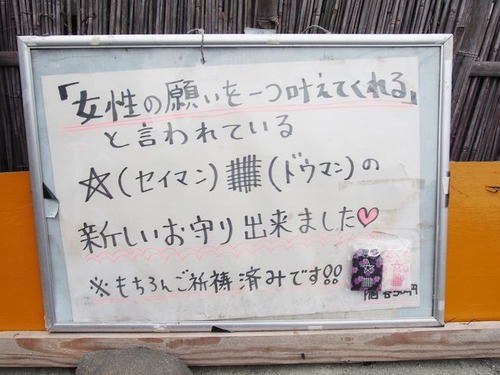 「女性の願いを一つ叶えてくれる」
と言われている
☆(セイマン)(ドウマン)の
新しいお守り出来ました♡
※もちろんご祈祷済みです!!